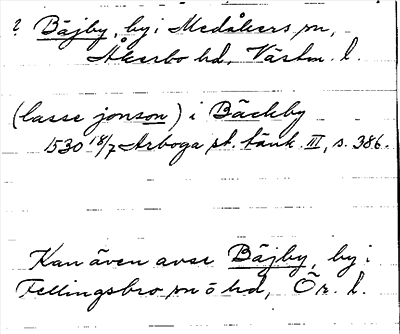 ? Bäjby, by i Medåkers sn,
Åkerbo hd, Västm. l.
(lasse jonson) i Bäckby
1530 18/7 Arboga st. tänk. III, s. 386.
Kan även avse Bäjby, by i
Fellingsbro sn o hd, Ör. l.